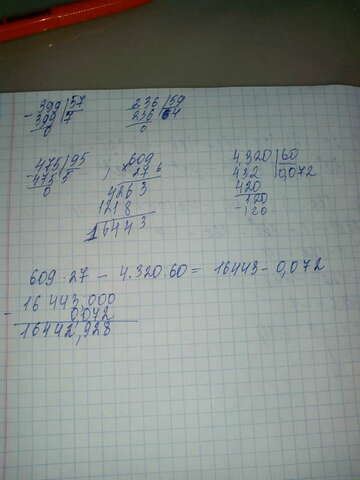 - 399 | 57
399 | 7
0
236 | 59
236 | 4
0
- 475 | 95
475 | 5
0
× 609
27 6
4263
1218
16443
4,320 | 60
432 | 0,072
420
120
- 120
609 · 27 - 4.320.60 = 16443 - 0,072
- 16 443,000
0,072
16442,928